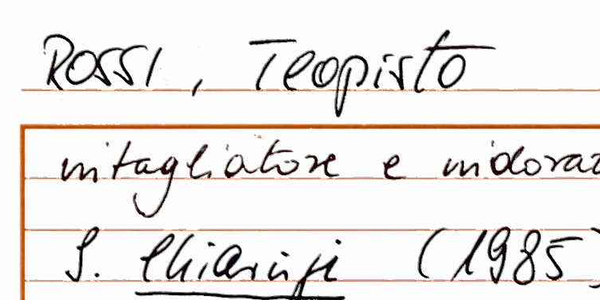 ROSSI, Teopisto
intagliatore e indora
S. Chiarini (1985)